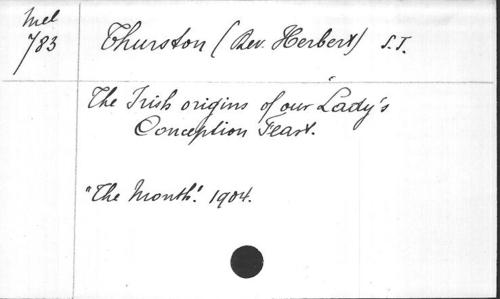 Mel
783
Thurston (Rev. Herbert) S.J.
The Irish origins of our Lady's
Conception Feast.
"The Month". 1904.